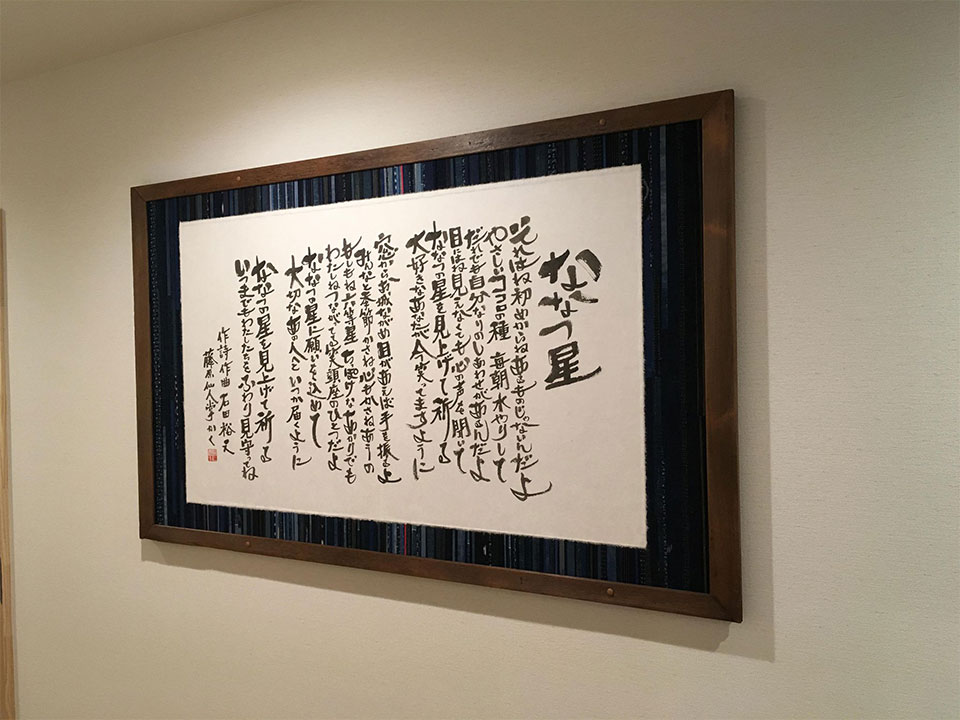 ななつ星
それはね初めからね あるものじゃないんだよ
やさしいココロの種 毎朝水やりして
だれでも自分なりのしあわせがあるんだよ
目にはね見えなくても心の声を聞いて
ななつの星を見上げて祈る
大好きなあなたが今笑ってますように
窓からお城ながめ 目があえば手を振るよ
みんなと季節かさね心もかさねあうの
わたしねつながってる笑顔座のひとつだよ
ななつの星に願いを込めて
大切なあの人へといつか届くように
ななつの星を見上げて祈る
いつまでもわたしたちをふわり見守ってね
作詩作曲 石田裕之